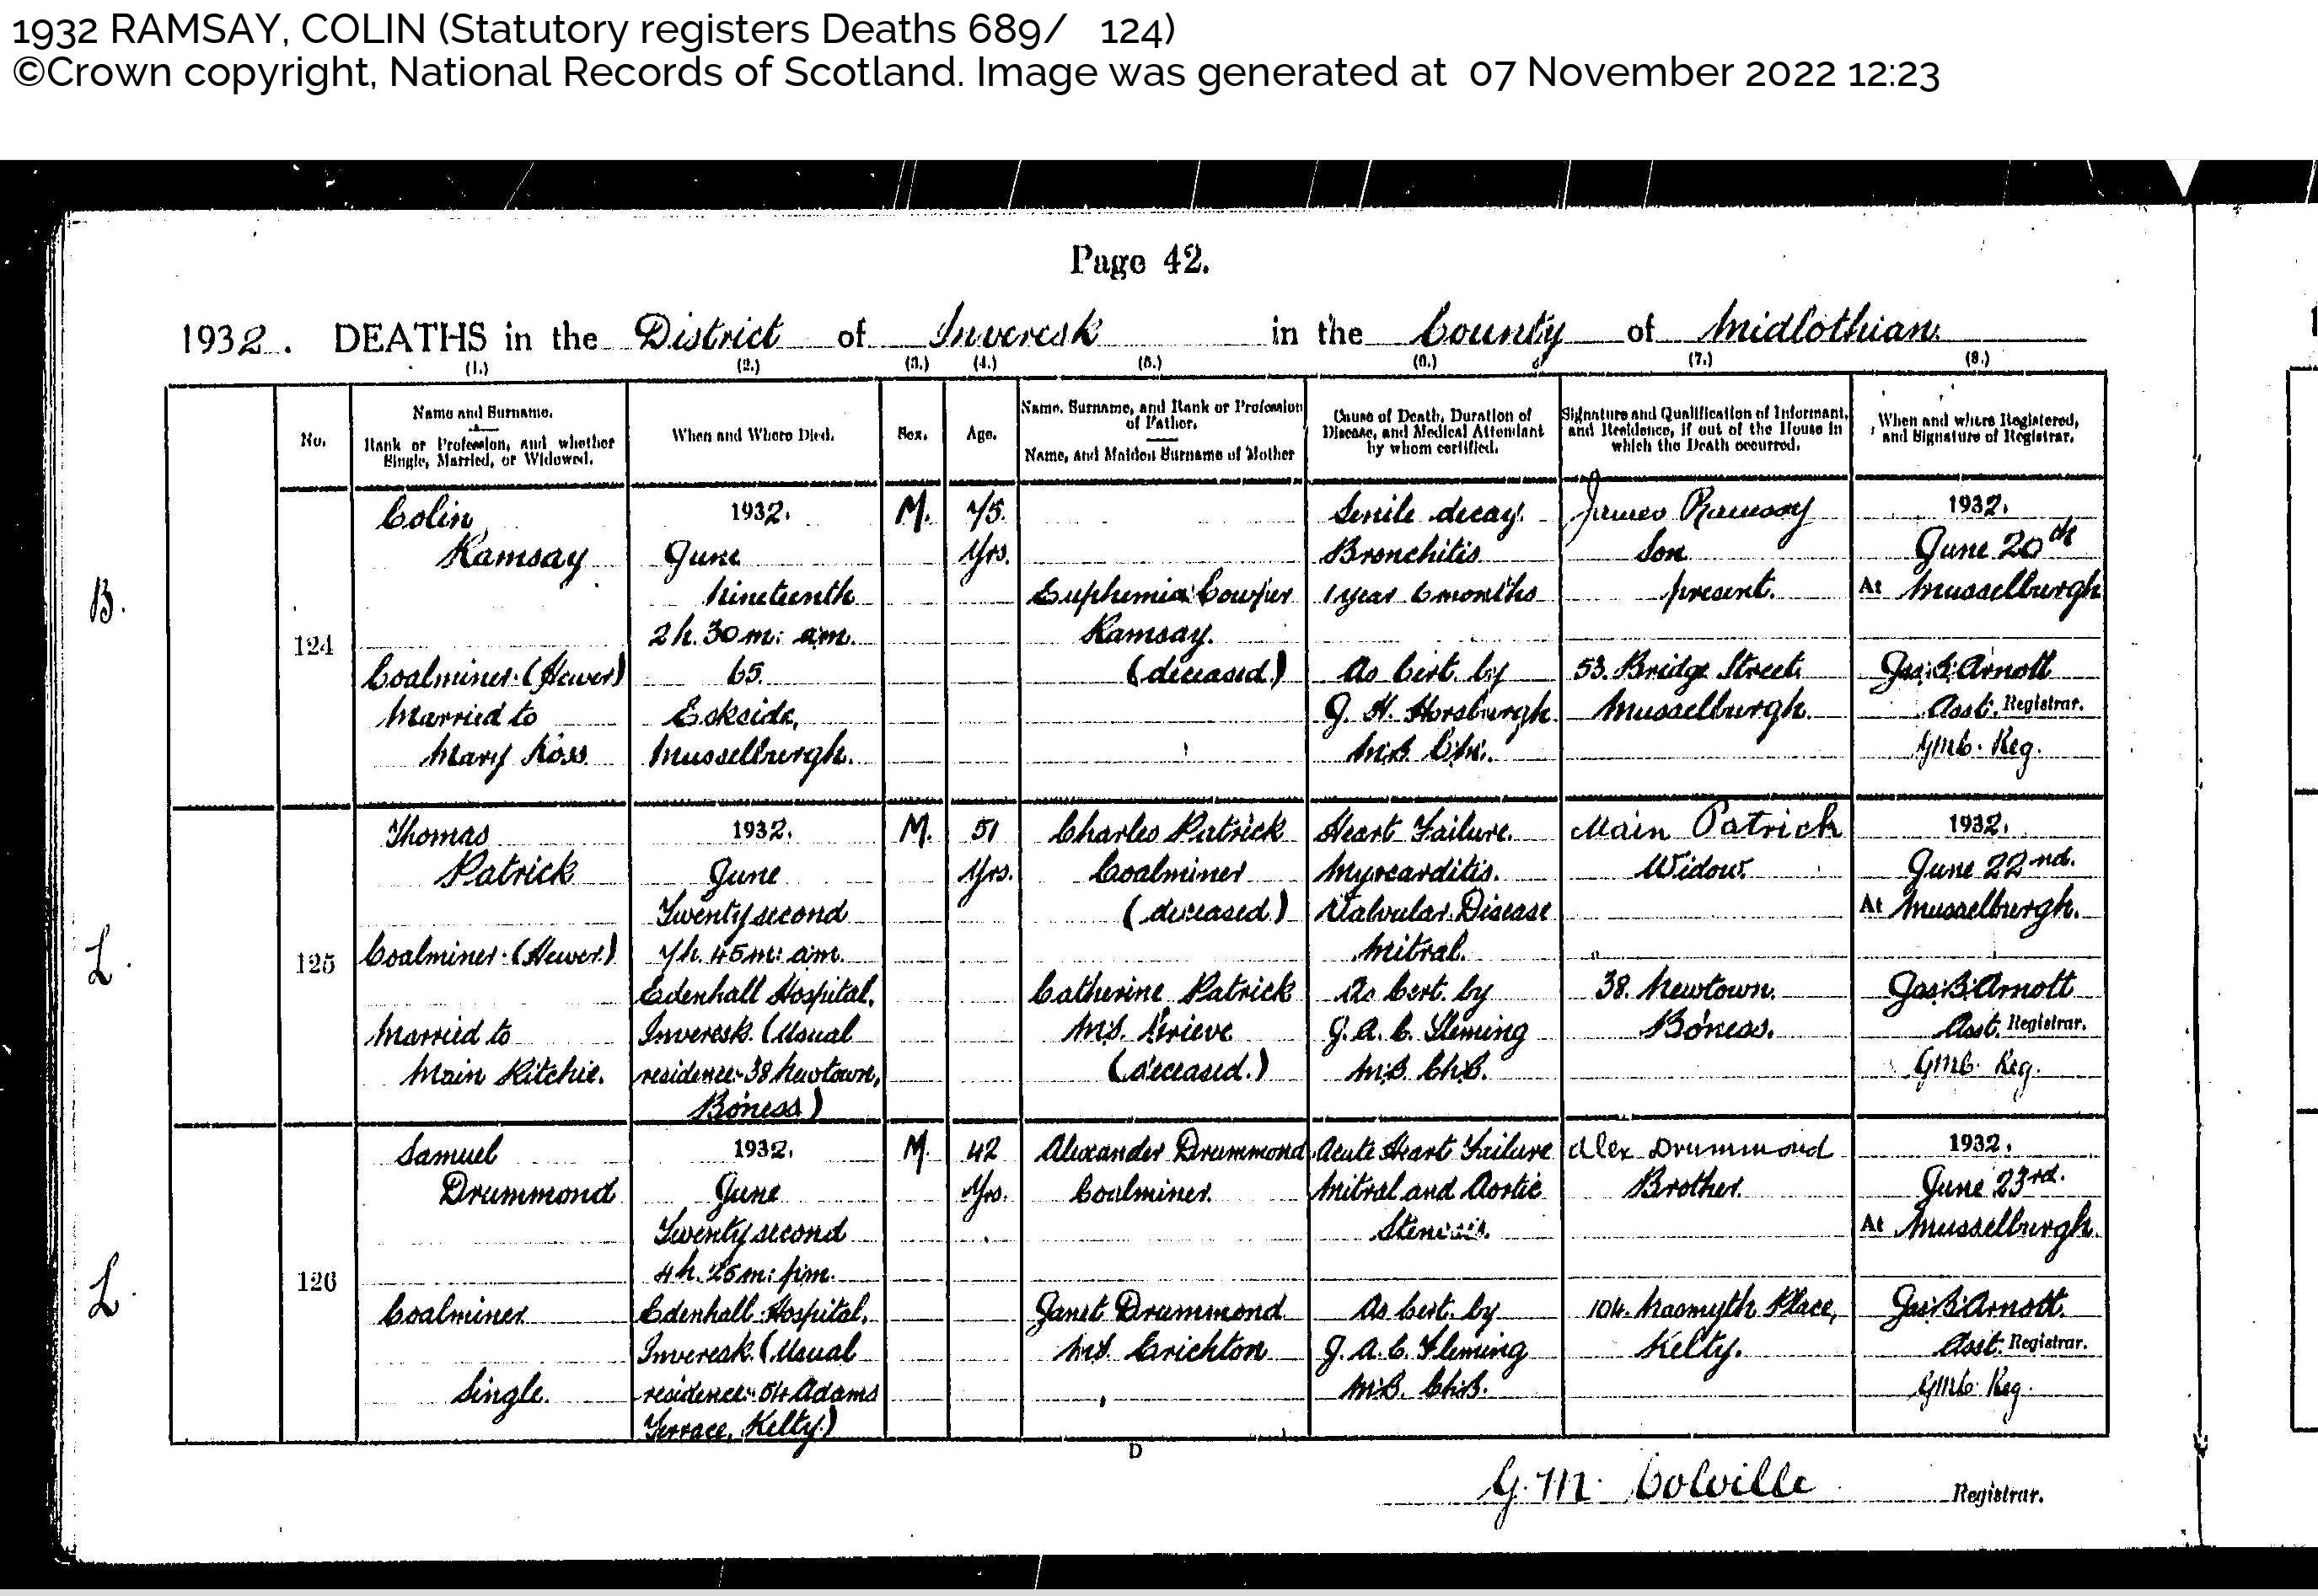 1932 RAMSAY, COLIN (Statutory registers Deaths 689/ 124)
©Crown copyright, National Records of Scotland. Image was generated at 07 November 2022 12:23
Page 42.
1932. DEATHS in the District of Inveresk in the County of Midlothian.
(1.) (2.) (3.) (4.) (5.) (6.) (7.) (8.)
No.
Name and Surname.
Rank or Profession, and whether
Single, Married, or Widowed.
When and Where Died.
Sex.
Age.
Name, Surname, and Rank or Profession
of Father.
Name, and Maiden Surname of Mother
Cause of Death, Duration of
Disease, and Medical Attendant
by whom certified.
Signature and Qualification of Informant,
and Residence, if out of the House in
which the Death occurred.
When and where Registered,
and Signature of Registrar.
B.
124
Colin
Ramsay
Coalminer (Hewer)
Married to
Mary Ross
1932.
June
Nineteenth
2h. 30m: a.m.
65.
Eskside,
Musselburgh.
M.
75.
Yrs.
Euphemia Cowper
Ramsay.
(deceased.)
Senile decay.
Bronchitis
1 year 6 months
As Cert. by
J. H. Horsburgh
M.B. C.M.
James Ramsay
Son
present.
53. Bridge Street,
Musselburgh.
1932.
June 20th
At Musselburgh
Jas. B. Arnott
Asst. Registrar.
GMC. Reg.
L.
125
Thomas
Patrick
Coalminer. (Hewer)
Married to
Main Ritchie.
1932.
June
Twenty second
7h. 45m: a.m.
Edenhall Hospital,
Inveresk. (Usual
residence: 38 Newtown,
Bo'ness)
M.
51
Yrs.
Charles Patrick
Coalminer
(deceased)
Catherine Patrick
M.S. Grieve
(deceased.)
Heart Failure.
Myocarditis.
Valvular Disease
Mitral.
As Cert. by
J. A. C. Fleming
M.B. Ch.B.
Main Patrick
Widow.
38. Newtown.
Bo'ness.
1932.
June 22nd.
At Musselburgh.
Jas. B. Arnott
Asst. Registrar.
GMC. Reg.
L.
126
Samuel
Drummond
Coalminer
Single.
1932.
June
Twenty second
4h. 25m: p.m.
Edenhall Hospital,
Inveresk. (Usual
residence: 54 Adams
Terrace, Kelty.)
M.
42
Yrs.
Alexander Drummond
Coalminer.
Janet Drummond
M.S. Crichton
Acute Heart Failure
Mitral and Aortic
Stenosis.
As Cert. by
J. A. C. Fleming
M.B. Ch.B.
Alex Drummond
Brother.
104. Nasmyth Place,
Kelty.
1932.
June 23rd.
At Musselburgh.
Jas. B. Arnott.
Asst. Registrar.
GMC. Reg.
D
G. M. Colville Registrar.